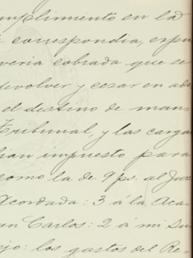 umplimiento en la
correspondia, espu
veria cobrada que se
devolver y cesar en ade
el destino de man
Tribunal, y las carga
ian impuesto para
como la de 9 ps. al Juz
Acordada: 3 á la Aca
an Carlos: 2 á mi
jo: los gastos del Re